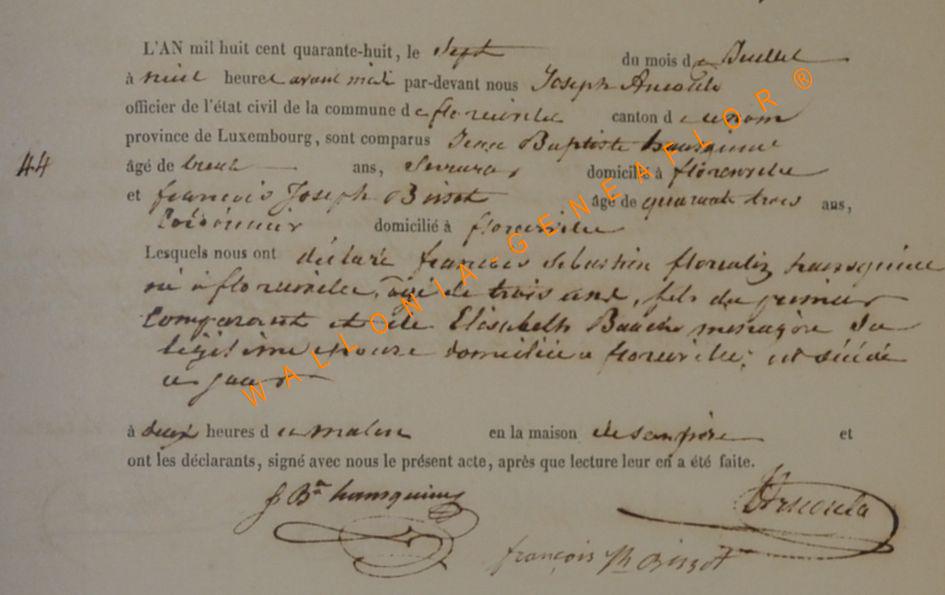 L'AN mil huit cent quarante-huit, le sept du mois de Juillet
à neuf heures avant midi par-devant nous Joseph Arnould
officier de l'état civil de la commune de florenville canton de ce nom
province de Luxembourg, sont comparus Jean Baptiste hansquine
44 âgé de trente ans, Serrurier domicilié à florenville
et françois Joseph Bissot âgé de quarante trois ans,
Cordonnier domicilié à florenville
Lesquels nous ont déclaré françois sébastien hansquine
né à florenville, âgé de trois ans, fils du premier
Comparant et de Elisabeth ménagère sa
légitime épouse domiciliée à florenville; est décédé
ce jour
à deux heures du matin en la maison de son père et
ont les déclarants, signé avec nous le présent acte, après que lecture leur en a été faite.
J Bte hansquine
Arnould
françois Jh Bissot
WALLONIA-GENEAFLOR ®